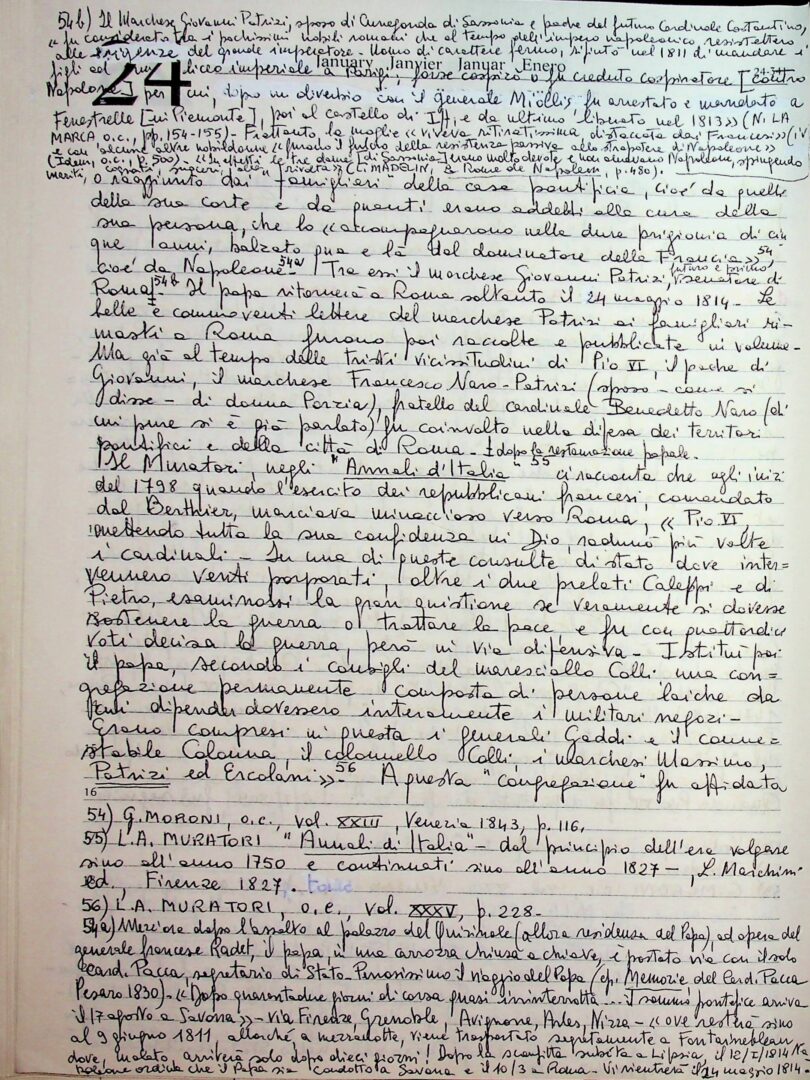 54 b) Il Marchese Giovanni Patrizi, sposo di Cunegonda di Sassonia e padre del futuro Cardinale Costantino,
« fu considerato tra i pochissimi nobili romani che al tempo dell'impero napoleonico resistettero
alle esigenze del grande imperatore. Uomo di carattere fermo, rifiutò nel 1811 di mandare i
figli ad un liceo imperiale a Parigi; forse cospirò o fu creduto cospiratore [contro
24
January Janvier Januar Enero
24-341
Napoleone] per cui, dopo un diverbio con il generale Miollis fu arrestato e mandato a
Fenestrelle [in Piemonte], poi al castello di If, e da ultimo liberato nel 1813 » (N. LA
MARCA o.c., pp. 154-155) - Frattanto, la moglie « viveva ritiratissima, distaccata dai Francesi » (
e con alcune altre nobildonne « fu il fulcro della resistenza passiva allo strapotere di Napoleone »
(Idem, o.c., p. 500). - « In effetti le tre dame [di Sassonia] erano molto devote e non amavano Napoleone, spingendo
mariti, cognati, suoceri, alla rivolta » (L. MADELIN, La Rome de Napoléon, p. 480).
o raggiunto dai "famigliari" della casa pontificia, cioè da quelli
della sua corte e da quanti erano addetti alla cura della
sua persona, che lo « accompagnarono nella dura prigionia di cin
que anni, balzato qua e là dal dominatore della Francia », 54
cioè da Napoleone 54a - Tra essi il marchese Giovanni Patrizi, futuro e primo senatore di
Roma ‡ 54b - Il papa ritornerà a Roma soltanto il 24 maggio 1814 - Le
belle e commoventi lettere del marchese Patrizi ai famigliari ri-
masti a Roma furono poi raccolte e pubblicate in volume -
Ma già al tempo delle tristi vicissitudini di Pio VI, il padre di
Giovanni, il marchese Francesco Naro-Patrizi (sposo - come si
disse - di donna Porzia), fratello del cardinale Benedetto Naro (di
cui pure si è già parlato) fu coinvolto nella difesa dei territori
pontifici e della città di Roma - ‡ dopo la restaurazione papale.
Il Muratori, negli "Annali d'Italia" 55 ci racconta che agli inizi
del 1798 quando l'esercito dei repubblicani francesi, comandato
dal Berthier, marciava minaccioso verso Roma, « Pio VI,
mettendo tutta la sua confidenza in Dio, radunò più volte
i cardinali - In una di queste consulte di stato dove inter=
vennero venti porporati, oltre i due prelati Caleppi e di
Pietro, esaminossi la gran quistione se veramente si dovesse
sostenere la guerra o trattare la pace e fu con quattordici
voti decisa la guerra, però in via difensiva - Istituì poi
il papa, secondo i consigli del maresciallo Colli una con=
gregazione permanente composta di persone laiche da
cui dipender dovessero interamente i militari negozi -
Erano compresi in questa i generali Gaddi e il conne=
stabile Colonna, il colonnello Colli, i marchesi Massimo,
Patrizi ed Ercolani » - 56 A questa "congregazione" fu affidata
16
54) G. MORONI, o.c., vol. XXIII, Venezia 1843, p. 116.
55) L.A. MURATORI "Annali di Italia" - dal principio dell'era volgare
sino all'anno 1750 e continuati sino all'anno 1827 -, L. Marchini
ed., Firenze 1827.
56) L.A. MURATORI, o.c., vol. XXXV, p. 228 -
54a) Mezz'ora dopo l'assalto al palazzo del Quirinale (allora residenza del Papa), ad opera del
generale francese Radet, il papa, in una carrozza chiusa a chiave, è portato via con il solo
Card. Pacca, segretario di Stato. Penosissimo il viaggio del Papa (cfr. Memorie del Card. Pacca
Pesaro 1830) - « Dopo quarantadue giorni di corsa quasi ininterrotta ... il sommo pontefice arriva
il 17 agosto a Savona » - via Firenze, Grenoble, Avignone, Arles, Nizza - « ove resterà sino
al 9 giugno 1811, allorché, a mezzanotte, viene trasportato segretamente a Fontainebleau,
dove, malato, arriverà solo dopo dieci giorni! Dopo la sconfitta subita a Lipsia, il 12/I/1814 Na
poleone ordina che il Papa sia condotto a Savona e il 10/3 a Roma - Vi rientrerà il 24 maggio 1814 -